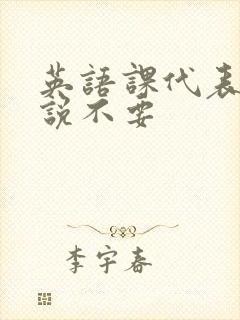 英語課代表
説不要
李宇春